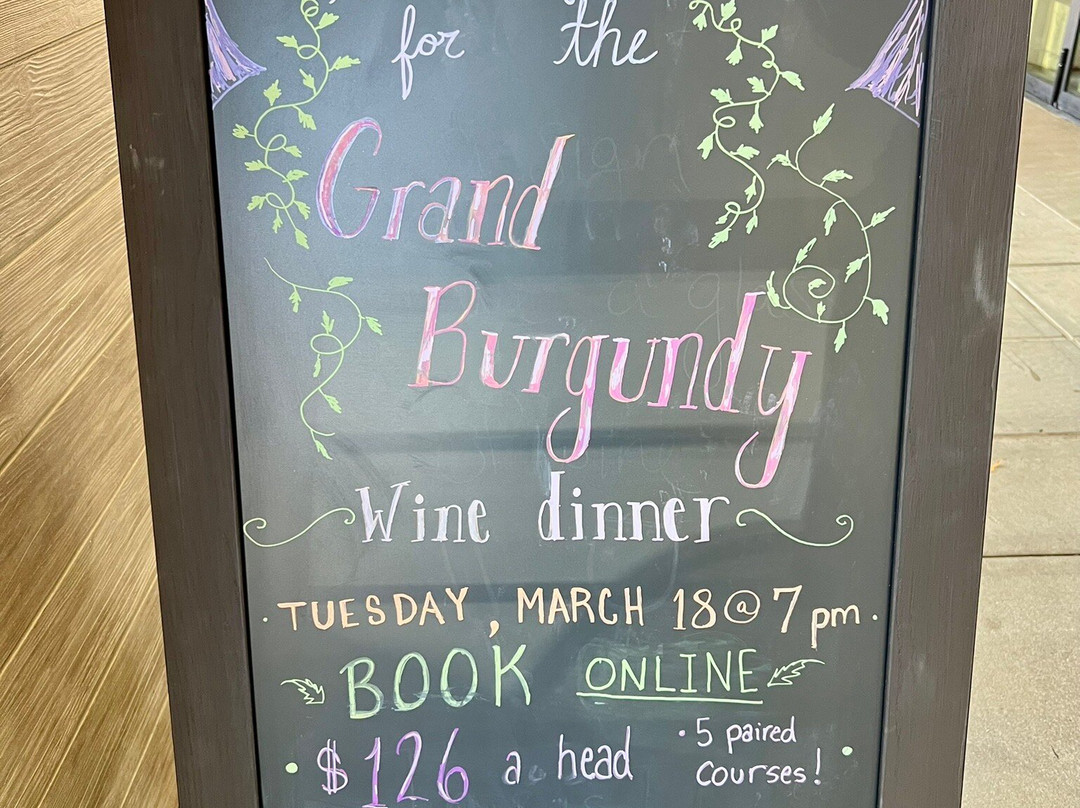 for the
Grand
Burgundy
Wine dinner
TUESDAY, MARCH 18@7pm
BOOK ONLINE
$126 a head
• 5 paired
courses!